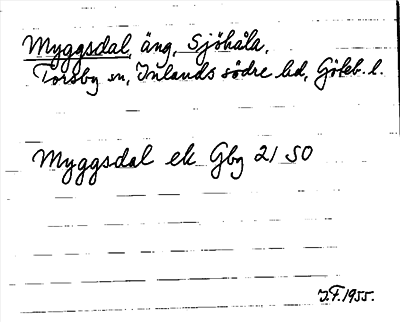 Myggsdal, äng, Sjöhåla,
Torsby sn, Inlands södre hd, Göteb. l.
Myggsdal ek Gbg 21 SO
J.F. 1955.